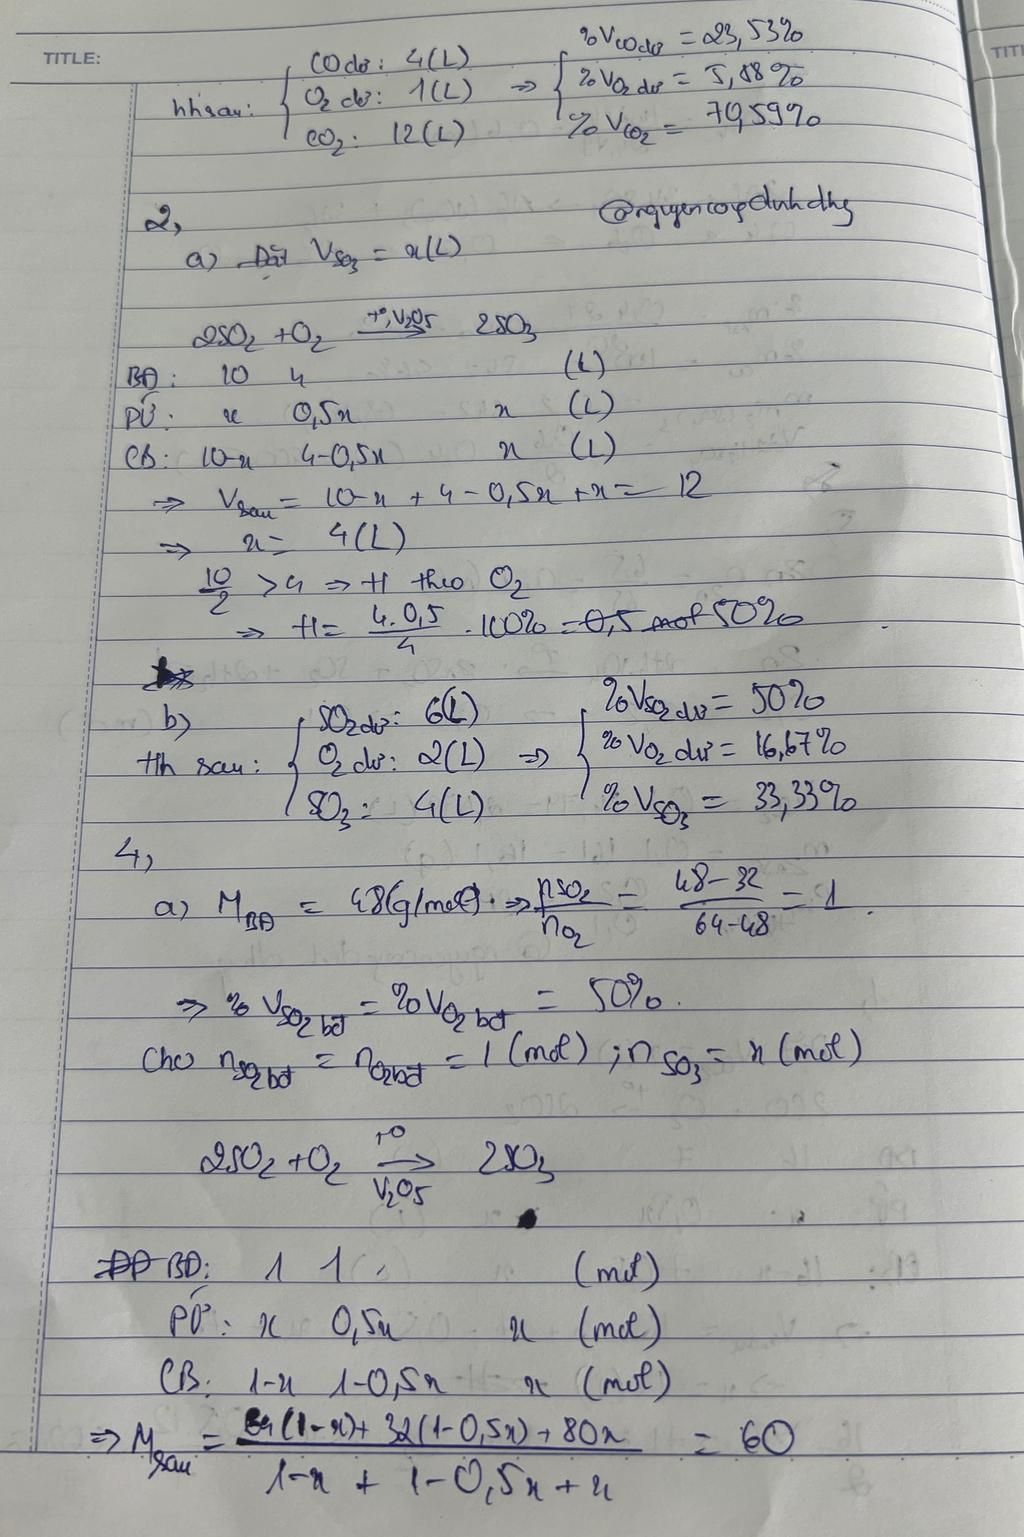 TITLE:
hh sau: { CO dư: 4(L) ⇒ { %V_CO dư = 23,53%
O₂ dư: 1(L) %V_O₂ dư = 5,88%
CO₂: 12(L) %V_CO₂ = 70,59%
2,
a) Đặt V_SO₃ = x(L)
2SO₂ + O₂ →(t°, V₂O₅) 2SO₃
BĐ: 10 4 (L)
PƯ: x 0,5x x (L)
CB: 10-x 4-0,5x x (L)
⇒ V_sau = 10-x + 4-0,5x + x = 12
⇒ x = 4(L)
10/2 > 4 ⇒ H theo O₂
⇒ H = (4.0,5)/4 .100% = 0,5 mol 50%
b)
Hh sau: { SO₂ dư: 6(L) ⇒ { %V_SO₂ dư = 50%
O₂ dư: 2(L) %V_O₂ dư = 16,67%
SO₃: 4(L) %V_SO₃ = 33,33%
4,
a) M_BĐ = 48(g/mol) ⇒ n_SO₂/n_O₂ = (48-32)/(64-48) = 1
⇒ %V_SO₂ bđ = %V_O₂ bđ = 50%.
Cho n_SO₂ bđ = n_O₂ bđ = 1 (mol) ; n_SO₃ = x (mol)
2SO₂ + O₂ →(t°, V₂O₅) 2SO₃
BĐ: 1 1 (mol)
PƯ: x 0,5x x (mol)
CB: 1-x 1-0,5x x (mol)
⇒ M_sau = (64(1-x) + 32(1-0,5x) + 80x)/(1-x + 1-0,5x + x) = 60